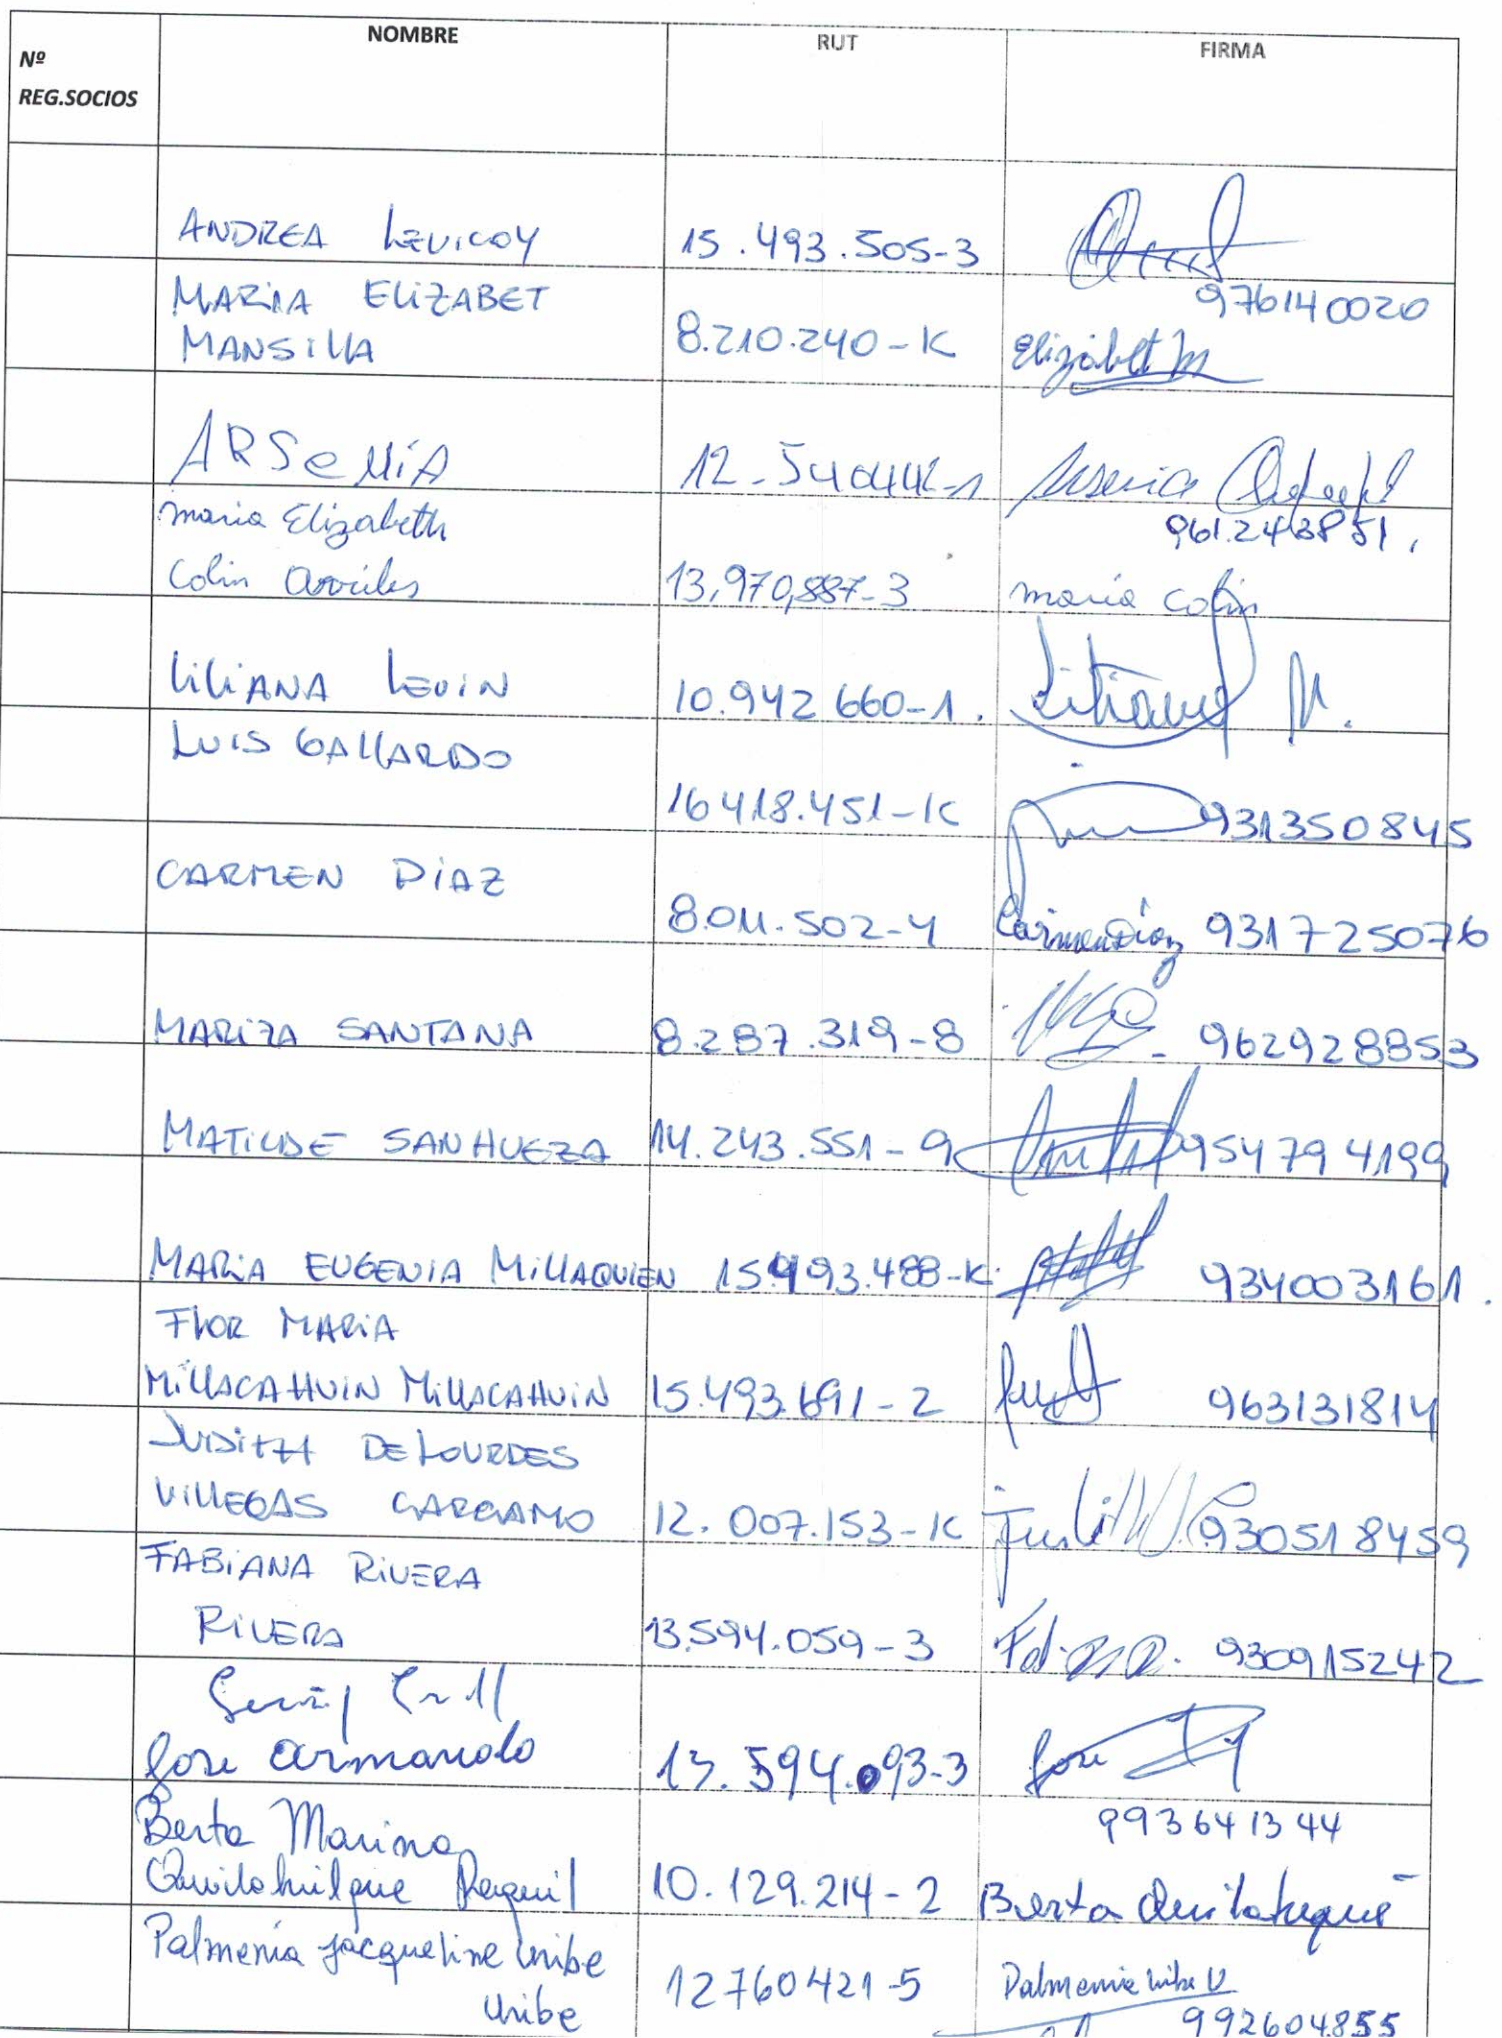 Nº
REG.SOCIOS
NOMBRE
RUT
FIRMA
ANDREA LEVICOY 15.493.505-3
976140020
MARIA ELIZABET
MANSILLA 8.210.240-K Elizabet M
ARSENIA 12-
961.243851.
maria Elizabeth
Colin 13,970,887-3 maria Colin
LILIANA LEVIN 10.942 660-1.
LUIS GALLARDO
16 418.451-K 931350845
CARMEN DIAZ
8.011.502-4 Carmen Diaz 931725076
MARIZA SANTANA 8.287.319-8 962928853
MATILDE SANHUEZA 14.243.551-9 954794199
MARIA EUGENIA MILLAQUIEN 15.493.488-K 934003161.
FLOR MARIA
MILLACAHUIN MILLACAHUIN 15.493.691-2 963131814
JUDITH DE LOURDES
VILLEGAS CARCAMO 12.007.153-K 930518459
FABIANA RIVERA
RIVERA 13.594.059-3 930915242
Jose armando 13.594.093-3 Jose
993641344
Berta Marina
10.129.214-2 Berta
Palmenia jacqueline Uribe
Uribe 12760421-5 Palmenia Uribe U
992604855